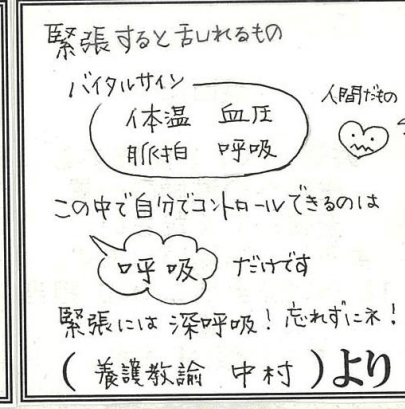 緊張すると乱れるもの
バイタルサイン
体温 血圧
脈拍 呼吸
人間だもの
この中で自分でコントロールできるのは
呼吸 だけです
緊張には深呼吸！忘れずにネ！
(養護教諭 中村)より